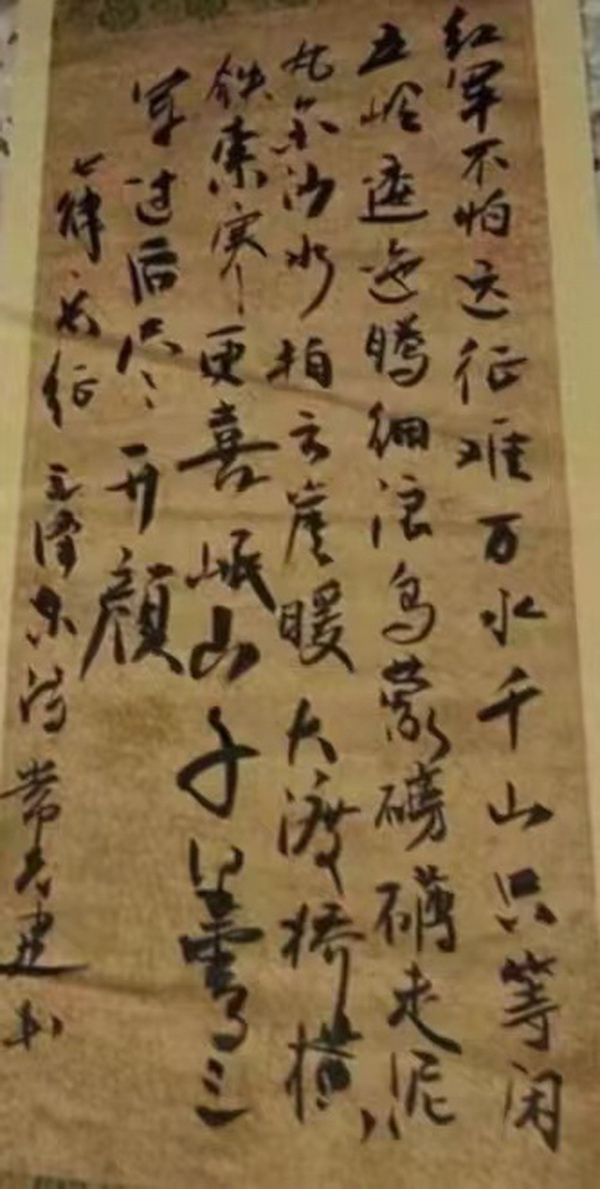 红军不怕远征难万水千山只等闲
五岭逶迤腾细浪乌蒙磅礴走泥
丸金沙水拍云崖暖大渡桥横
铁索寒更喜岷山千里雪三
军过后尽开颜
七律长征毛泽东诗常建书